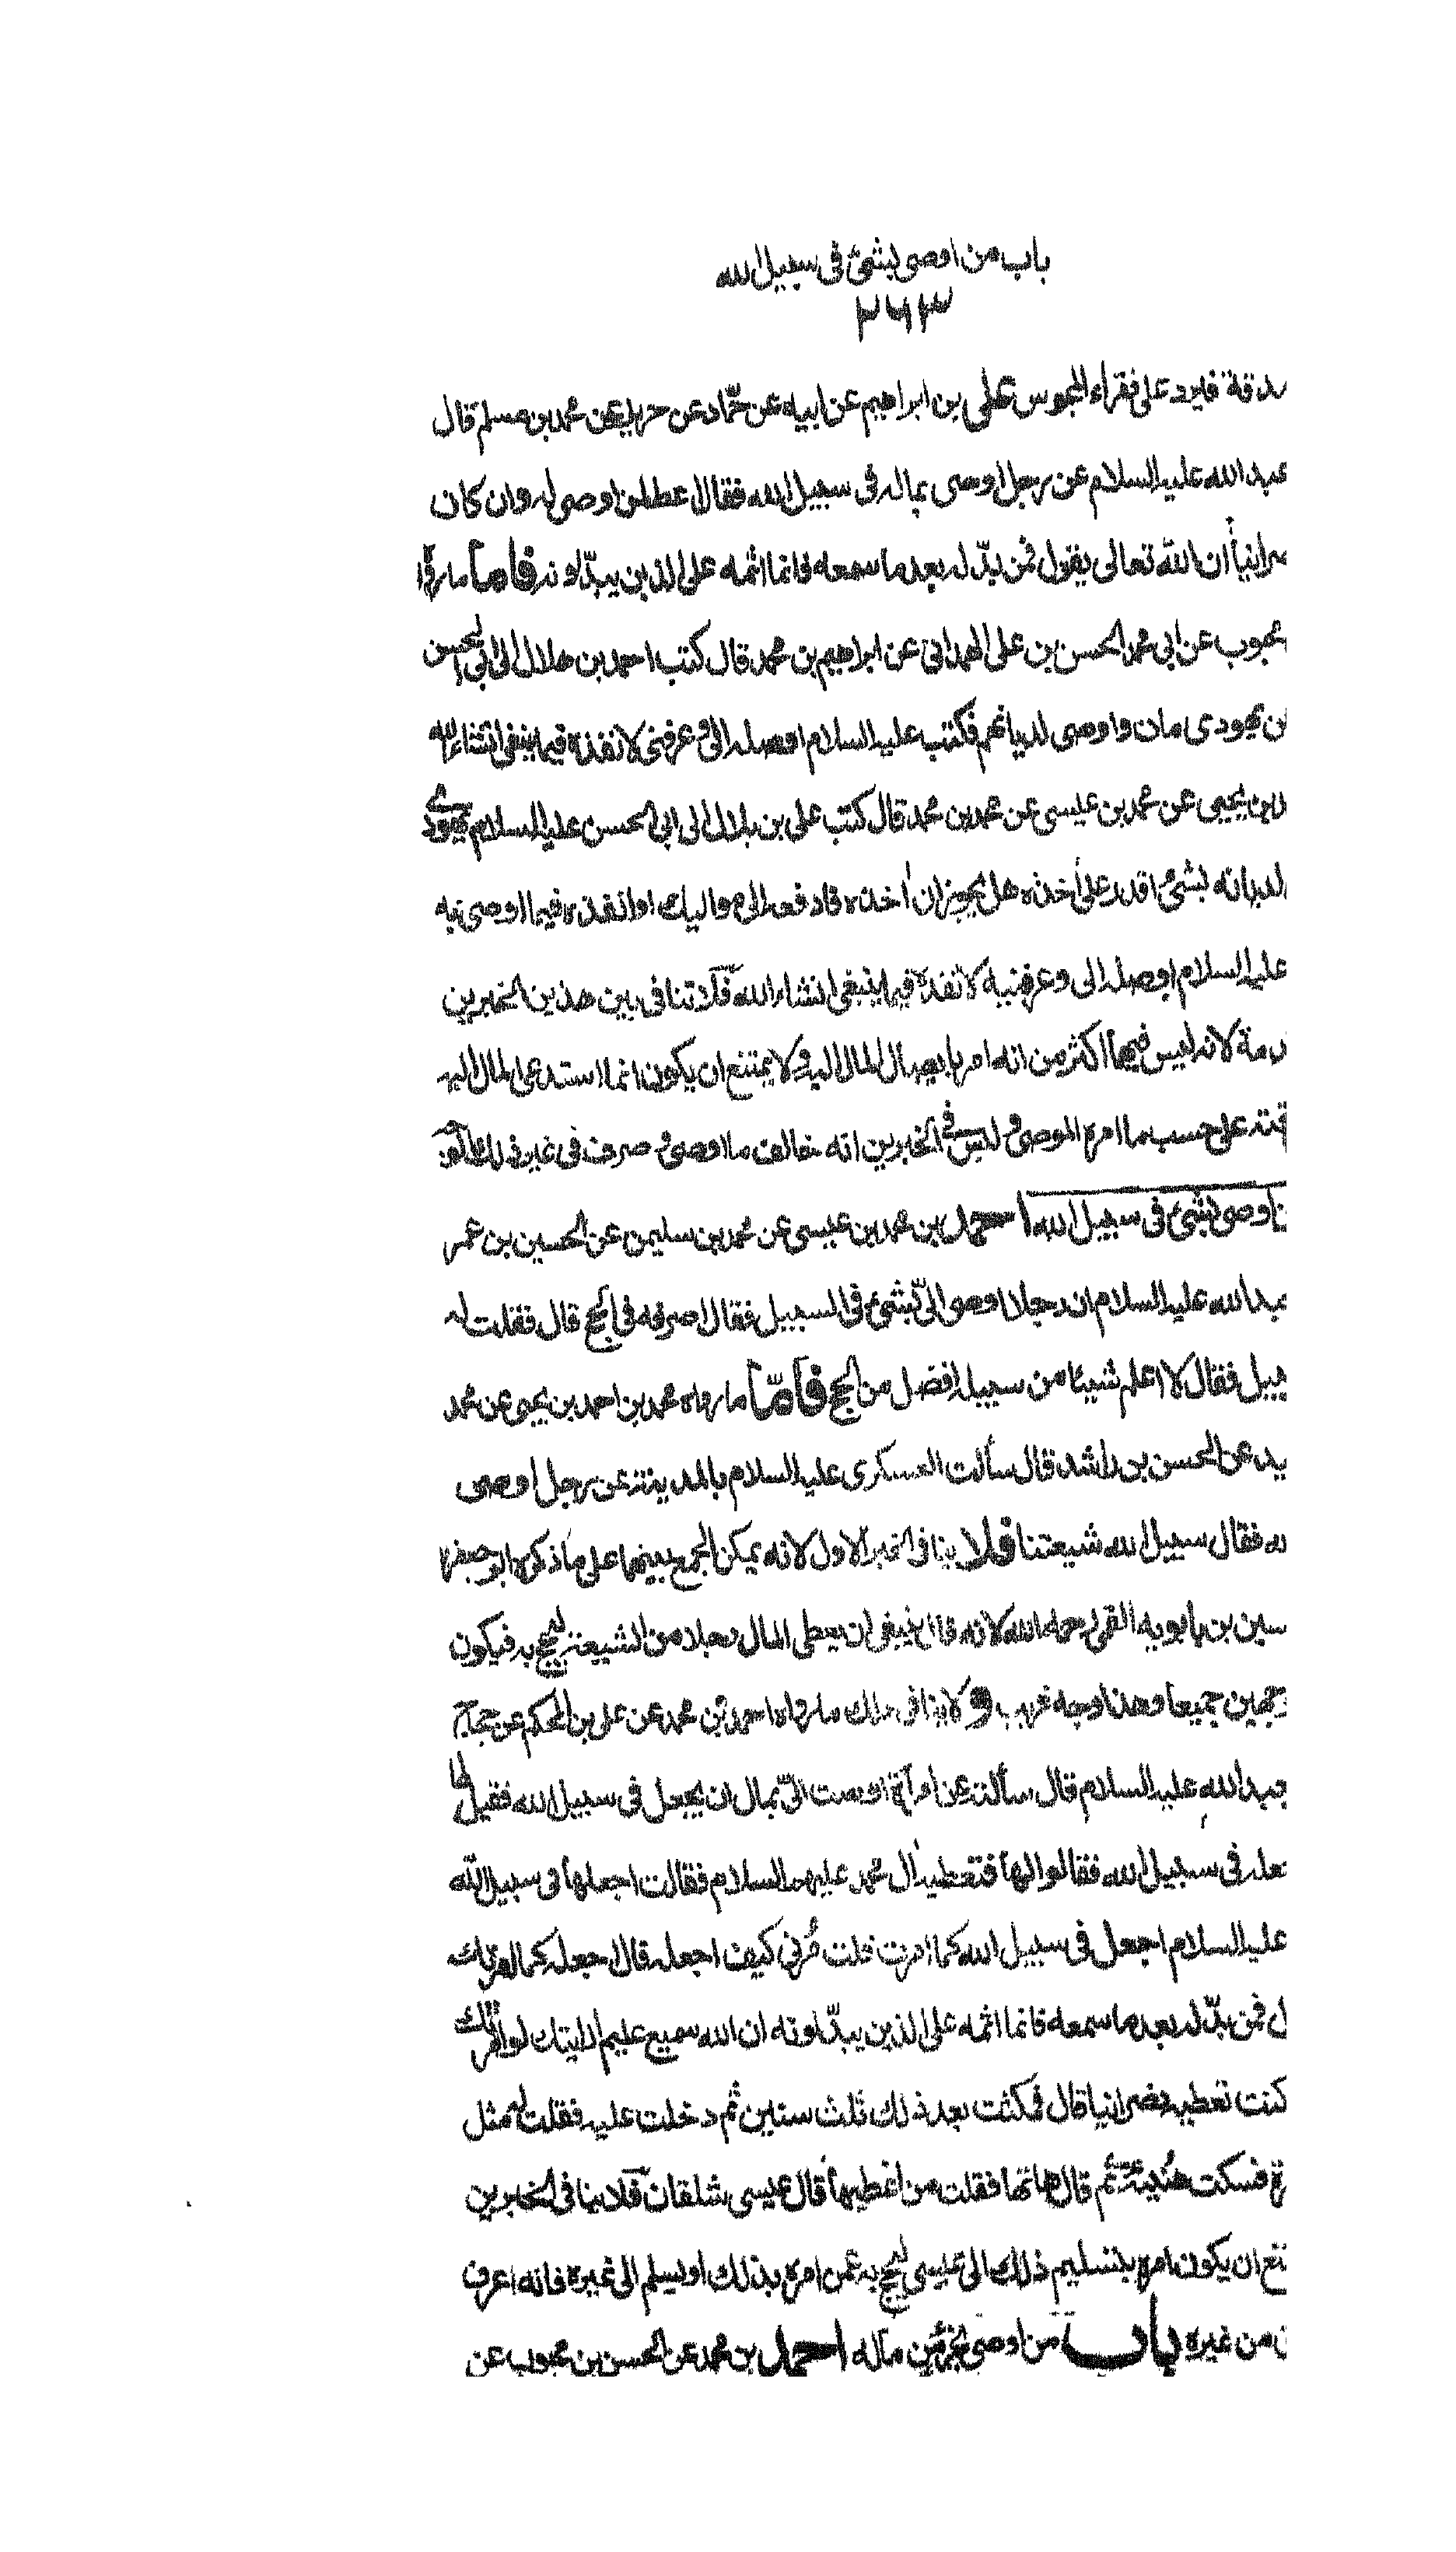 باب من اوصى بشئ فى سبيل الله
٢٦٣
صدقة فليرد على فقراء المجوس على بن ابراهيم عن ابيه عن حمّاد عن حريز عن محمد بن مسلم قال
عبد الله عليه السلام عن رجل اوصى بماله فى سبيل الله فقال اعط لمن اوصى له وان كان
نصرانيا ان الله تعالى يقول فمن بدّله بعد ما سمعه فانما اثمه على الذين يبدّلونه فاما ما رواه
محبوب عن ابى محمد الحسن بن على الهمدانى عن ابراهيم بن محمد قال كتب احمد بن هلال الى ابى الحسن
عن يهودى مات واوصى لديانهم فكتب عليه السلام اوصله الىّ وعرفنى لانفذه فيما ينبغى انشاء الله
بن يحيى عن محمد بن عيسى عن محمد بن محمد قال كتب على بن بلال الى ابى الحسن عليه السلام يهودى
لديانه بشئ اقدر على اخذه هل يجوز ان اخذه فادفعه الى مواليك او انفذه فيما اوصى به
عليه السلام اوصله الى وعرفنيه لانفذه فيما ينبغى انشاء الله فلا تنافى بين هذين الخبرين
لانه ليس فيهما اكثر من انه امر بايصال المال اليه ولا يمتنع ان يكون انما استدعى المال اليه
على حسب ما امره الموصى وليس فى الخبرين انه خالف ما اوصى وصرف فى غير ذلك
من اوصى بشئ فى سبيل الله احمد بن محمد بن عيسى عن محمد بن سليمن عن الحسين بن عمر
عبد الله عليه السلام ان رجلا اوصى الىّ بشئ فى السبيل فقال اصرفه فى الحج قال فقلت له
سبيل فقال لا اعلم شيئا من سبيله افضل من الحج فامّا ما رواه محمد بن احمد بن يحيى عن محمد
عن الحسن بن راشد قال سألت العسكرى عليه السلام بالمدينة عن رجل اوصى
الله فقال سبيل الله شيعتنا فلا ينافى الخبر الاول لانه يمكن الجمع بينهما على ما ذكره ابو جعفر
بن بابويه القمى رحمه الله لانه قال ينبغى ان يعطى المال رجلا من الشيعة ليحج به فيكون
الوجهين جميعا وهذا وجه قريب ولا ينافى ذلك ما رواه احمد بن محمد عن على بن الحكم عن حجاج
عبد الله عليه السلام قال سألته عن امرأة اوصت الىّ بمال ان يجعل فى سبيل الله فقيل لها
نجعله فى سبيل الله فقالوا لها فنعطيه آل محمد عليهم السلام فقالت اجعلها فى سبيل الله
عليه السلام اجعل فى سبيل الله كما امرت قلت مُرنى كيف اجعله قال اجعله كما امرتك
فمن بدّله بعد ما سمعه فانما اثمه على الذين يبدّلونه ان الله سميع عليم ارايتك لو امرتك
كنت تعطيه نصرانيا قال فمكثت بعد ذلك ثلث سنين ثم دخلت عليه فقلت له مثل
مرة فسكت هُنيئة ثم قال هاتها فقلت من اعطيها قال عيسى شلقان فلا ينافى الخبرين
يمتنع ان يكون امره بتسليم ذلك الى عيسى ليحج به عمن امره بذلك او يسلم الى غيره فانه اعرف
من غيره باب من اوصى بجزء من ماله احمد بن محمد عن الحسن بن محبوب عن